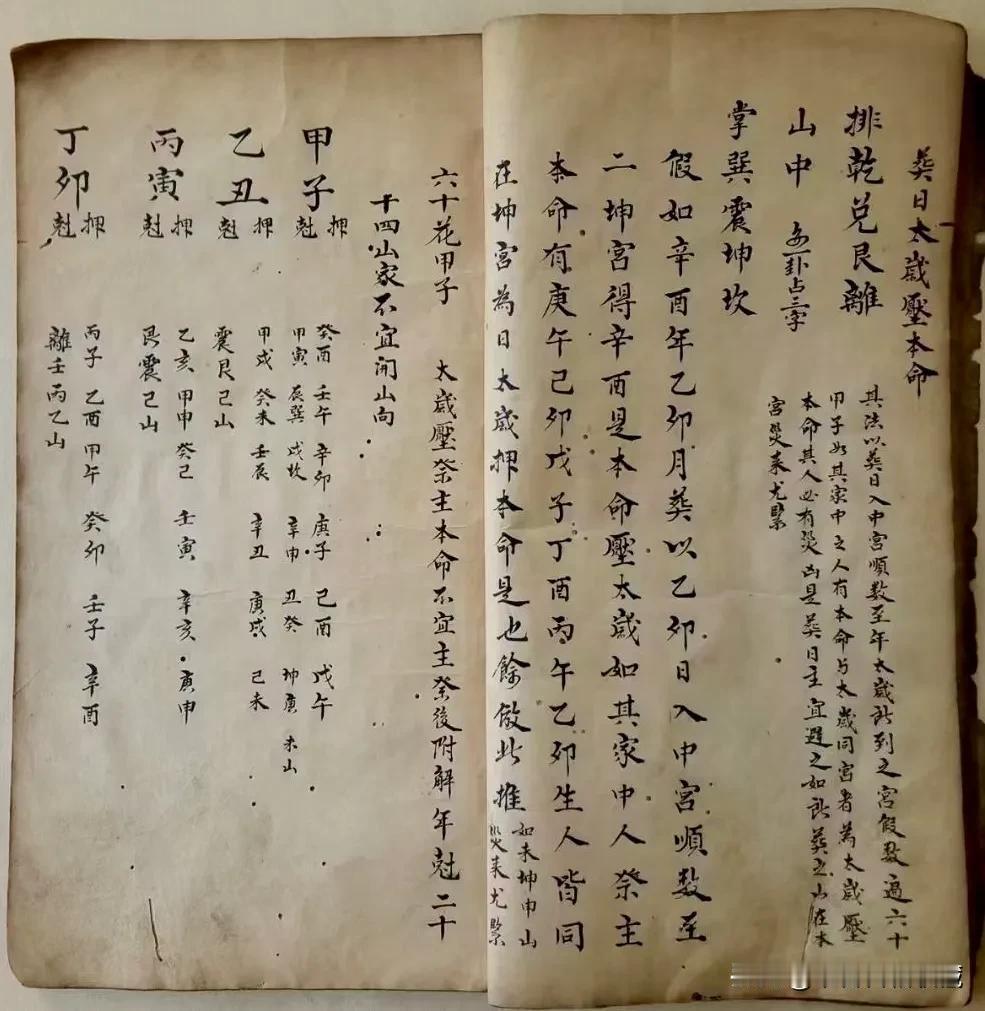 葬日太歲壓本命
排乾兌艮離
山中
每一卦占三字
掌巽震坤坎
其法以葬日入中宮順数至年太歲所到之宮假数遍六十
甲子如其家中之人有本命与太歲同宮者為太歲壓
本命其人必有災凶是葬日主宜避之如所葬之山在本
宮災来尤緊
假如辛酉年乙卯月葬以乙卯日入中宮順数至
二坤宮得辛酉是本命壓太歲如其家中人祭主
本命有庚午己卯戊子丁酉丙午乙卯生人皆同
在坤宮為日太歲押本命是也餘倣此推
如未坤申山
災来尤緊
六十花甲子 太歲壓祭主本命不宜主祭後附解年尅二十
十四山家不宜開山向
甲子
押
尅
癸酉 壬午 辛卯 庚子 己酉 戊午
甲寅 辰巽 戌坎 辛申 丑癸 坤庚 未山
乙丑
押
尅
甲戌 癸未 壬辰 辛丑 庚戌 己未
震艮己山
丙寅
押
尅
乙亥 甲申 癸己 壬寅 辛亥 庚申
艮震己山
丁卯
押
尅
丙子 乙酉 甲午 癸卯 壬子 辛酉
離壬丙乙山